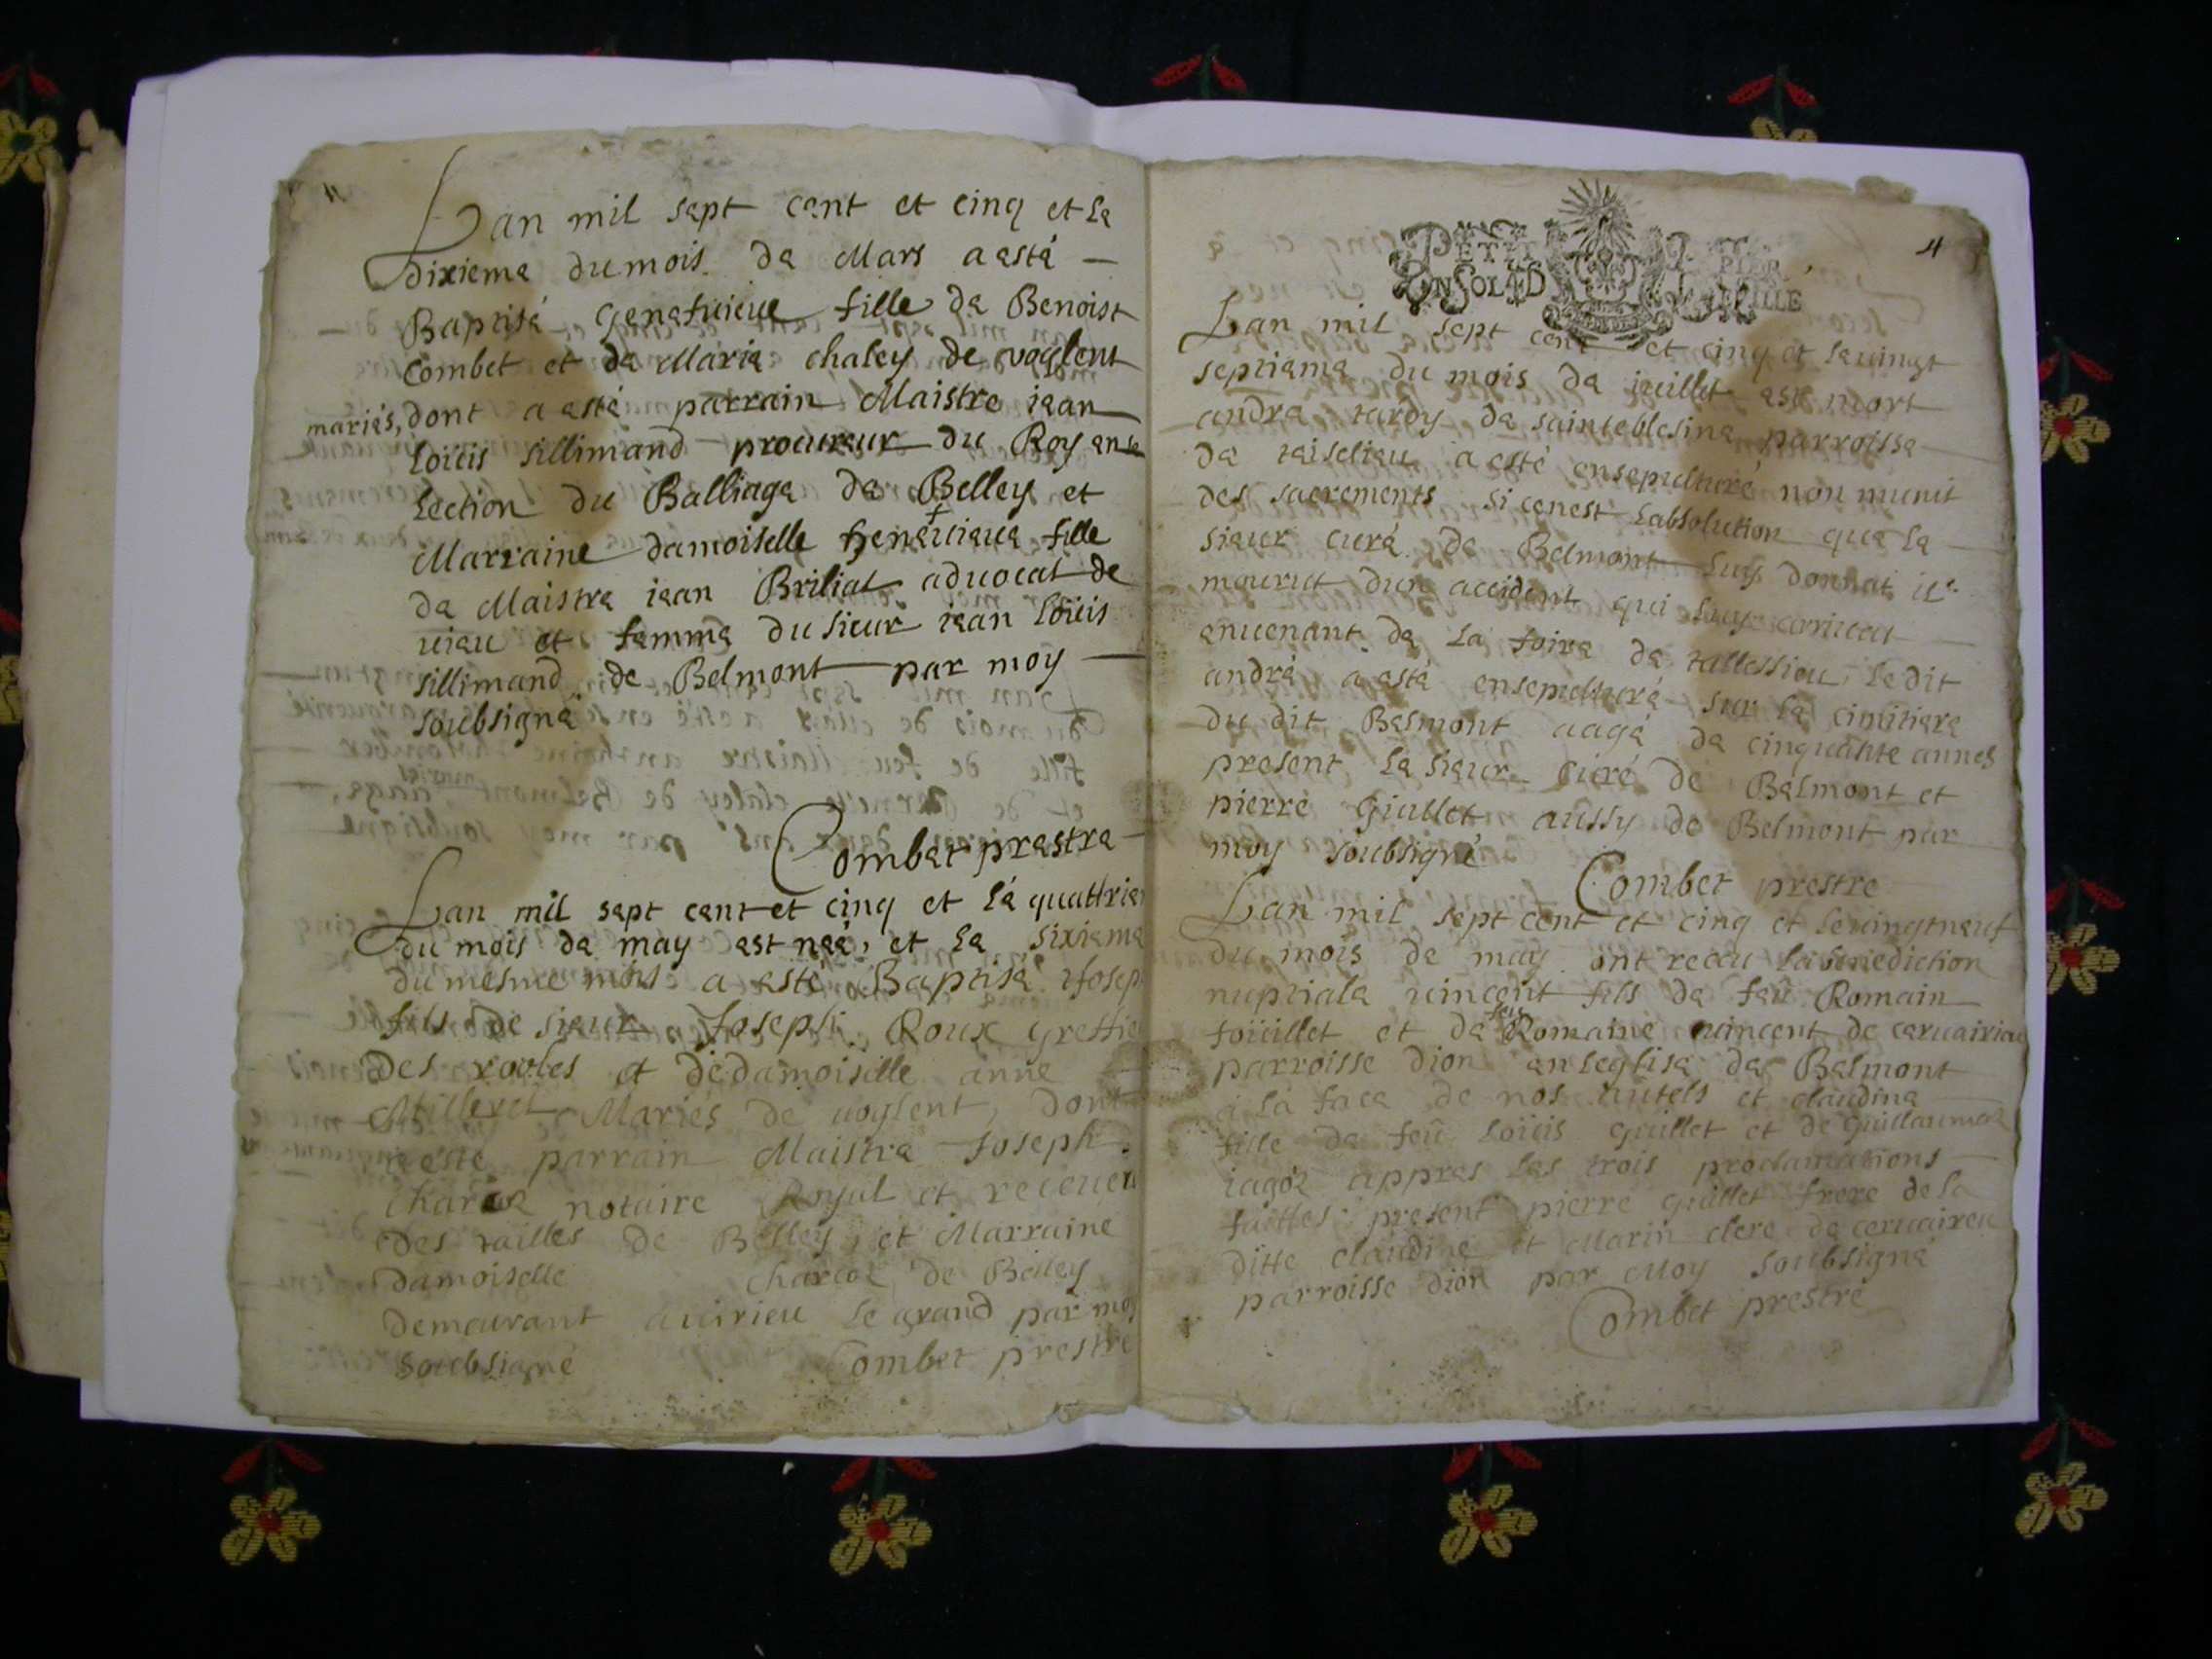 Lan mil sept cent et cinq et le
dixieme du mois de Mars a esté
Baptisé genefuieue fille de Benoist
Combet et de Marie chaley de voglent
mariés, dont a esté parrain Maistre iean
loüis sillimand procureur du Roy en le
lection du Balliage de Belley et
Marraine damoiselle fille
de Maistre iean Briliat aduocat de
uieu et femme du sieur iean loüis
sillimand de Belmont par moy
soubsigné
Combet prestre
Lan mil sept cent et cinq et le quattrie
du mois de may est neé, et le sixieme
du mesme mois a esté Baptisé Josep
fils de sieur Joseph Roux greffie
des rooles et de damoiselle anne
Milleret Mariés de voglent, dont
a esté parrain Maistre Joseph
notaire Royal et receueu
des tailles de Belley, et Marraine
damoiselle de Belley
demeurant auirieu le grand par moy
soubsigné Combet prestre
4
PETIT PAPIER
Lan mil sept cent et cinq et le uingt
septieme du mois de iuillet est mort
andre tardy de sainteblesine parroisse
de taiselieu a esté ensepulturé non munit
des sacrements si cenest labsolution que le
sieur curé de Belmont luy donnat il
mourut dun accident qui luy arriuat
en uenant de la foire de tallessieu, le dit
andré a esté ensepulturé sur le cimitiere
du dit Belmont aagé de cinquante annes
present le sieur curé de Belmont et
pierre Giullet aussy de Belmont par
moy soubsigné
Combet prestre
Lan mil sept cent et cinq et le uingtneuf
du mois de may ont receu la benediction
nuptiale uincent fils de feu Romain
foüillet et de feüe Romaine uincent de ceruairieu
parroisse dion en leglise de Belmont
a la face de nos autels et claudine
fille de feu loüis guillet et de guillaumaz
iagoz appres les trois proclamations
faittes: present pierre guillet frere de la
ditte claudine et Marin clerc de ceruairieu
parroisse dion par Moy soubsigné
Combet prestre